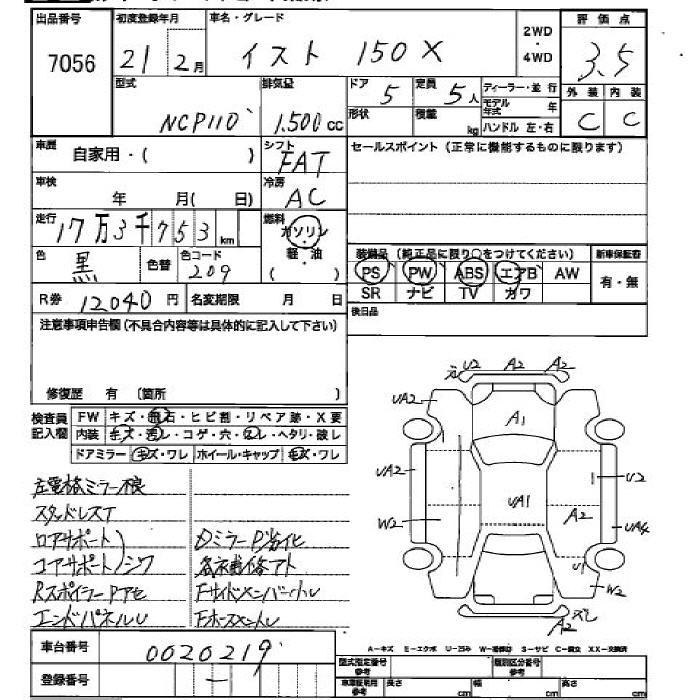 出品番号 初度登録年月 車名・グレード 2WD・4WD 評価点
7056 21 2月 イスト 150X 3.5
型式 排気量 ドア 定員 ディーラー・並行 外装 内装
NCP110 1,500cc 5 5人 モデル年式 年 C C
形状 積載 kg ハンドル 左・右
車歴 自家用・( ) シフト FAT セールスポイント(正常に機能するものに限ります)
車検 年 月( 日) 冷房 AC
走行 17万3千753km 燃料 ガソリン・軽・油 ( )
色 黒 色替 色コード 209
装備品(純正品に限り○をつけてください) 新車保証書
PS PW ABS エアB AW 有・無
SR ナビ TV カワ
R券 12040円 名変期限 月 日 後日品
注意事項申告欄(不具合内容等は具体的に記入して下さい)
修復歴 有 (箇所 )
検査員記入欄 FW キズ・飛石・ヒビ割・リペア跡・X要
内装 キズ・汚レ・コゲ・穴・ヨレ・ヘタリ・破レ
ドアミラー キズ・ワレ ホイール・キャップ キズ・ワレ
左電格ミラー不良
スタッドレスT
ロアサポート) Dミラー P劣化
コアサポート)シワ
RスポイラーPアセ FサイドメンバーハU
エンドパネルU
U2 A2 A2
UA2 A1
UA2 UA1 U2
W2 A2 UA4
U1 W2
A2
車台番号 0020219
A-キズ E-エクボ U-凹み W-補修跡 S-サビ C-腐食 XX-交換済
登録番号 - 型式指定番号 参考 類別区分番号 参考
車庫証明用 参考 長さ cm 幅 cm 高さ cm